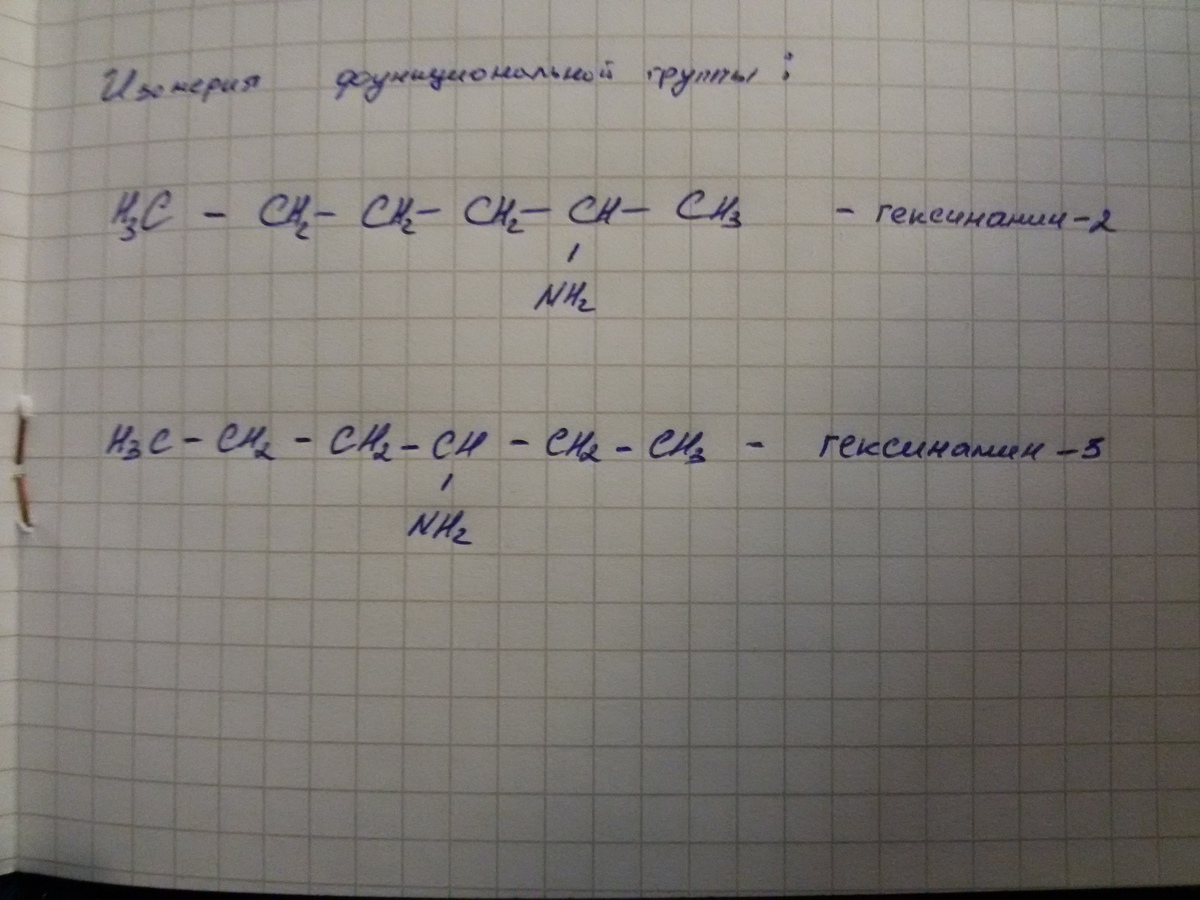 Изомерия функциональной группы:
H₃C – CH₂ – CH₂ – CH₂ – CH – CH₃ – гексинамин-2
NH₂
H₃C – CH₂ – CH₂ – CH – CH₂ – CH₃ – гексинамин-3
NH₂